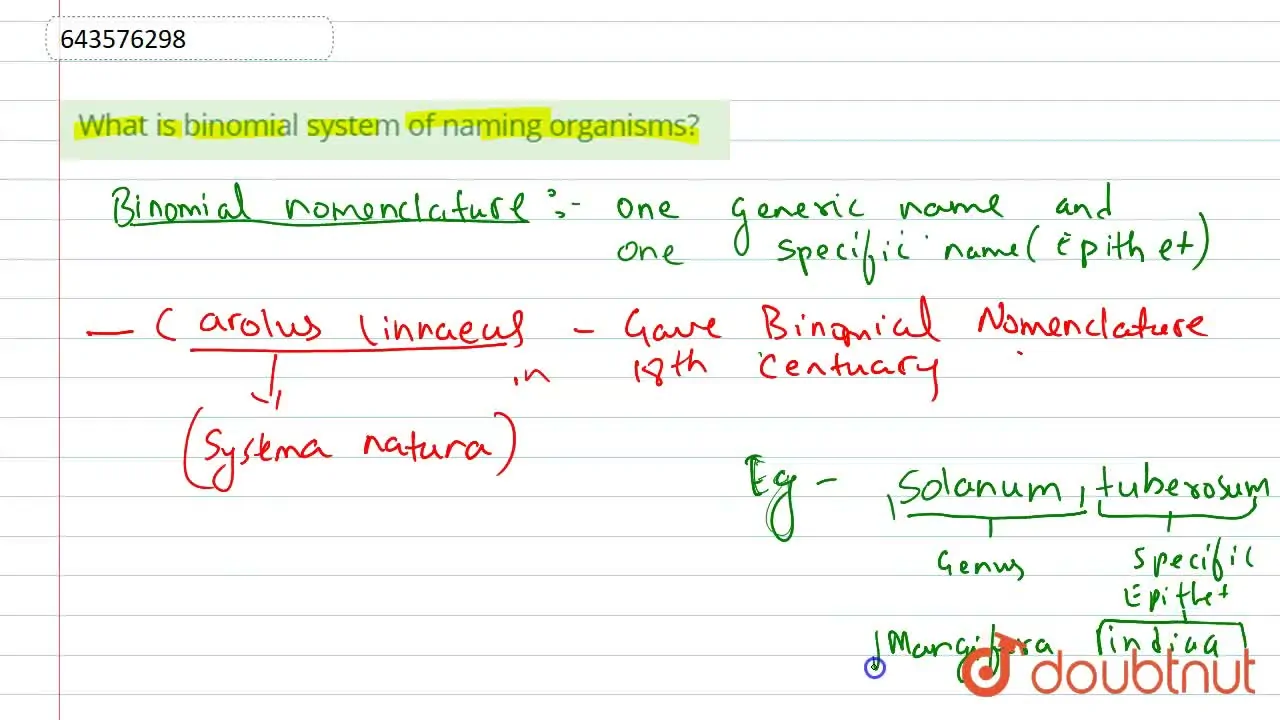 643576298
What is binomial system of naming organisms?
Binomial nomenclature :- one generic name and
one specific name (Epithet)
— Carolus linnaeus - Gave Binomial Nomenclature
in 18th Centuary
(Systema natura)
Eg - Solanum tuberosum
Genus Specific
Epithet
Mangifera indica
doubtnut